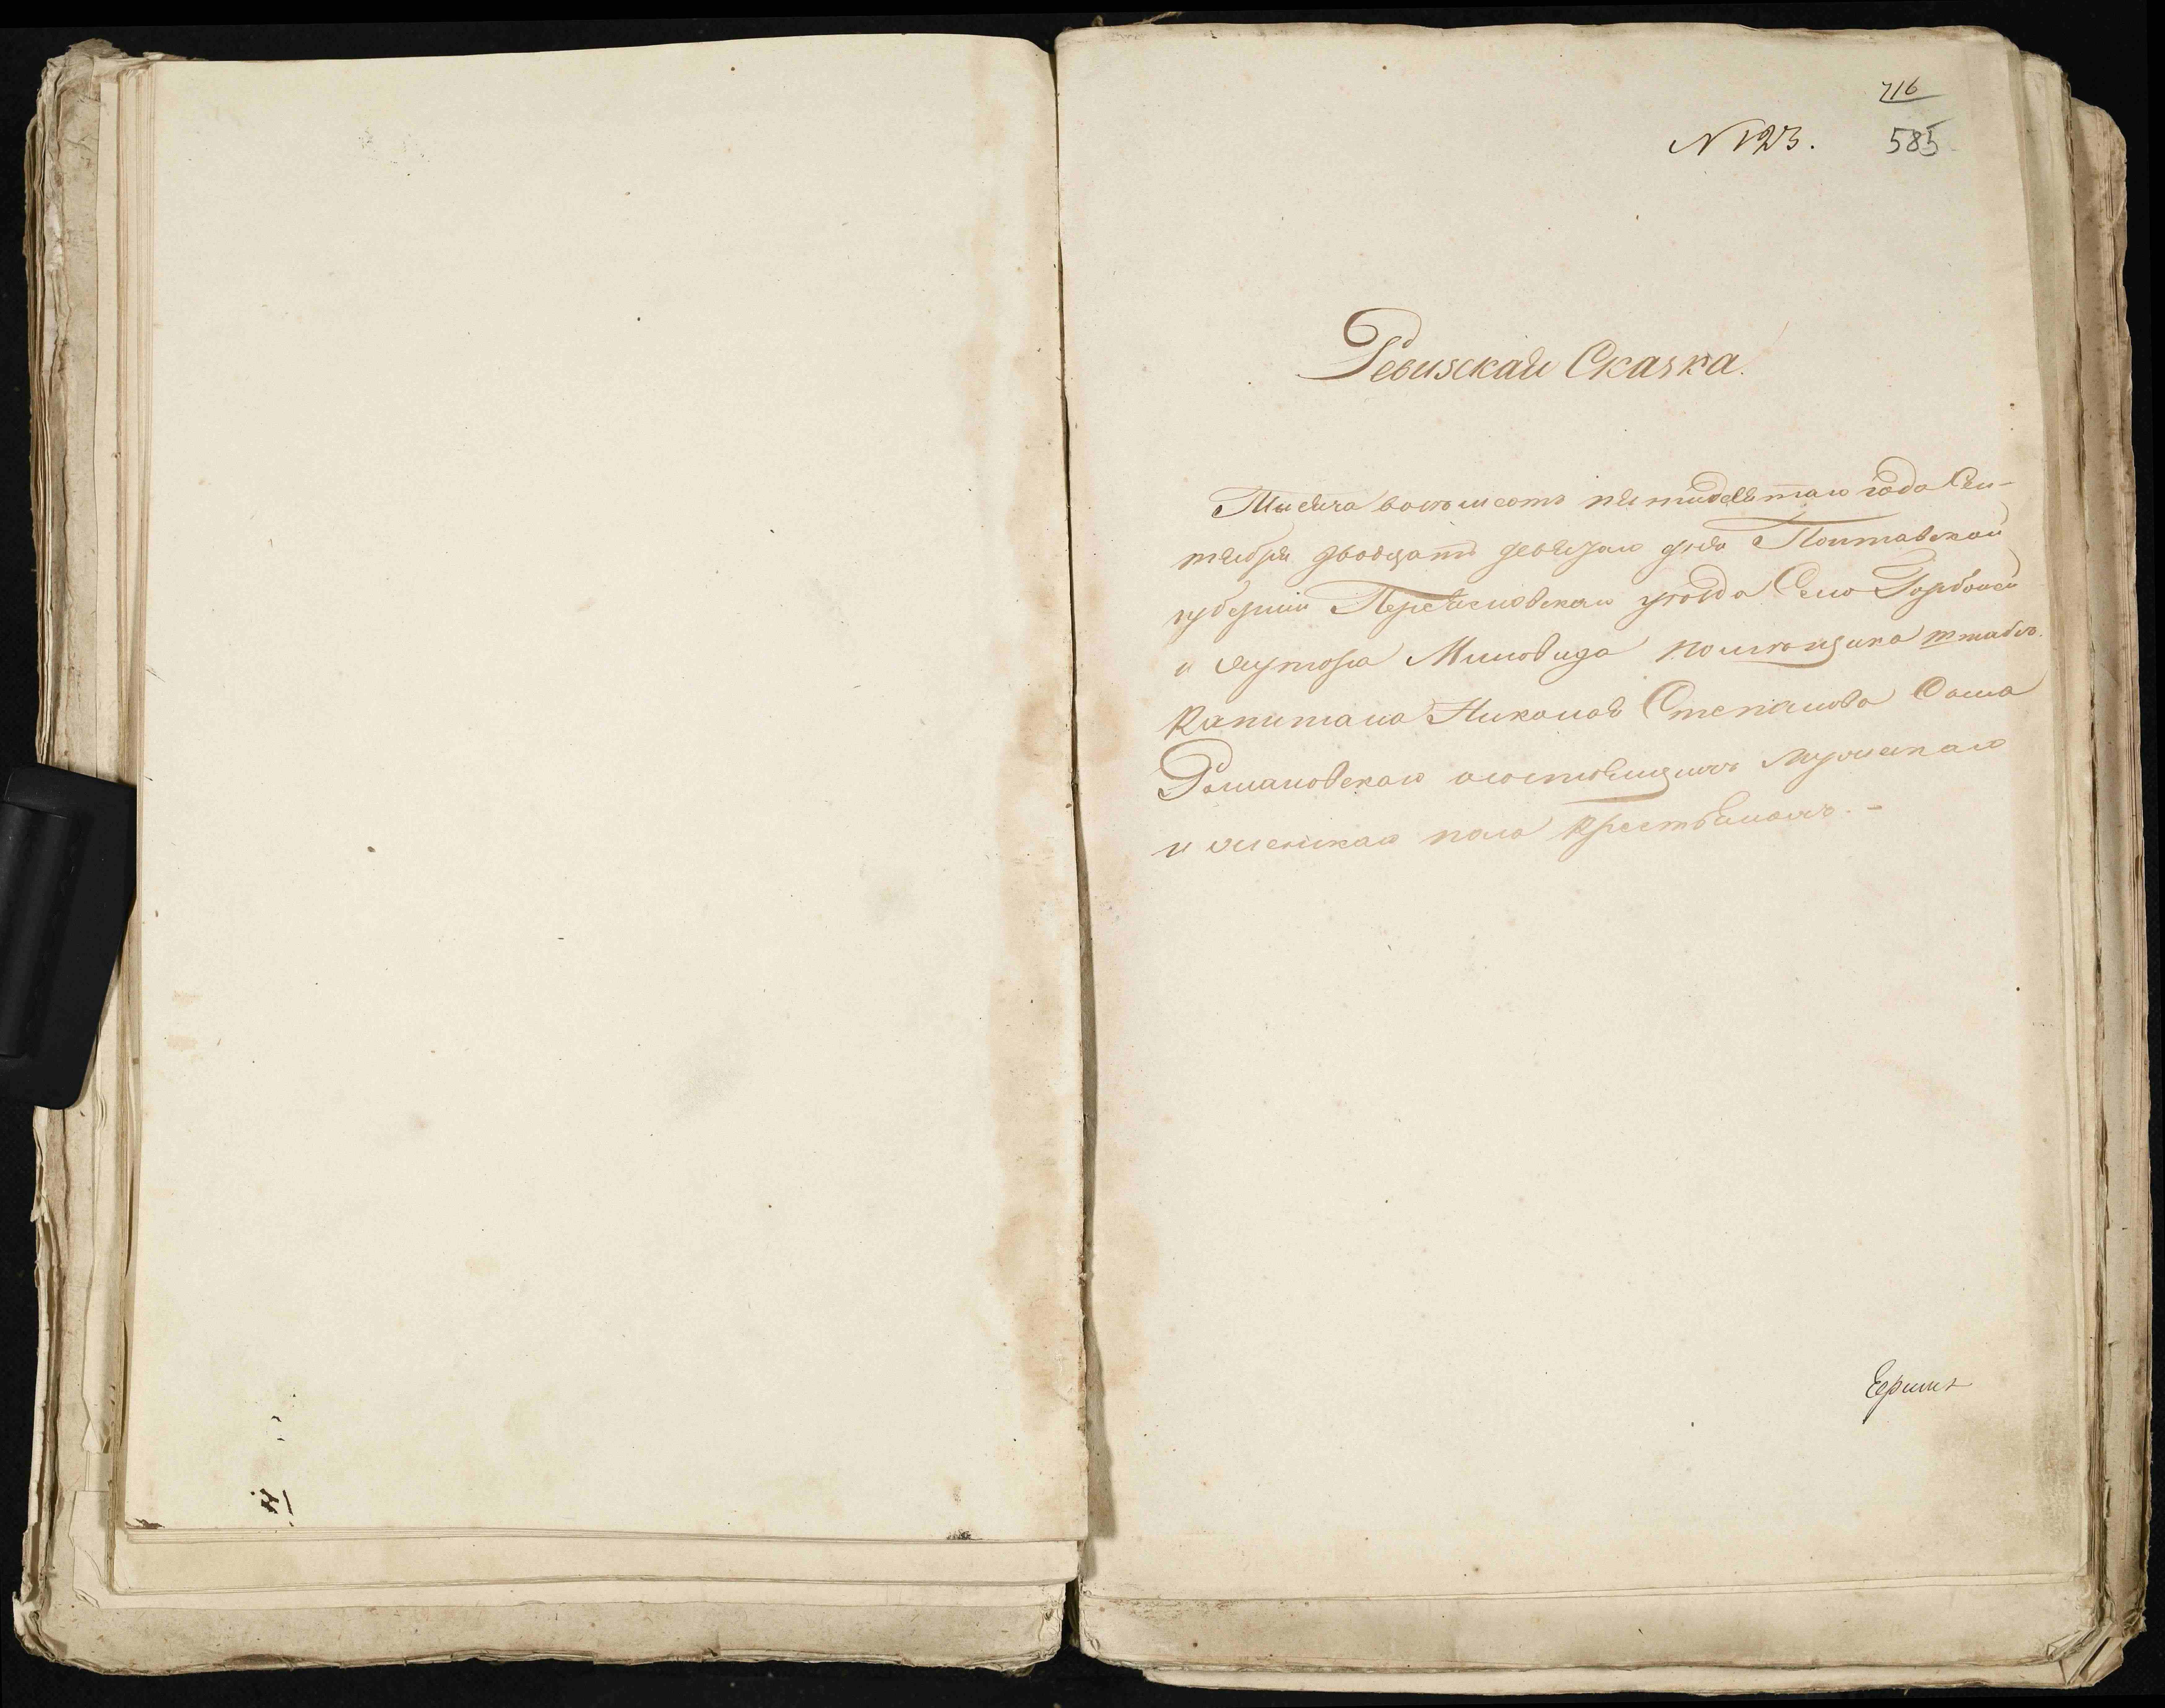 716
N 123. 585
Ревизская Сказка.
Тысяча восемсотъ пятидесятаго года Сен-
тября двадцать девятаго дня Полтавской
губерніи Переясловскаго уезда Села Горбоней
и хутора Миловида помѣщика штабсъ
Капитана Николая Степанова Сына
Романовскаго о состоящихъ мужескаго
и женскаго пола крестьянахъ. -